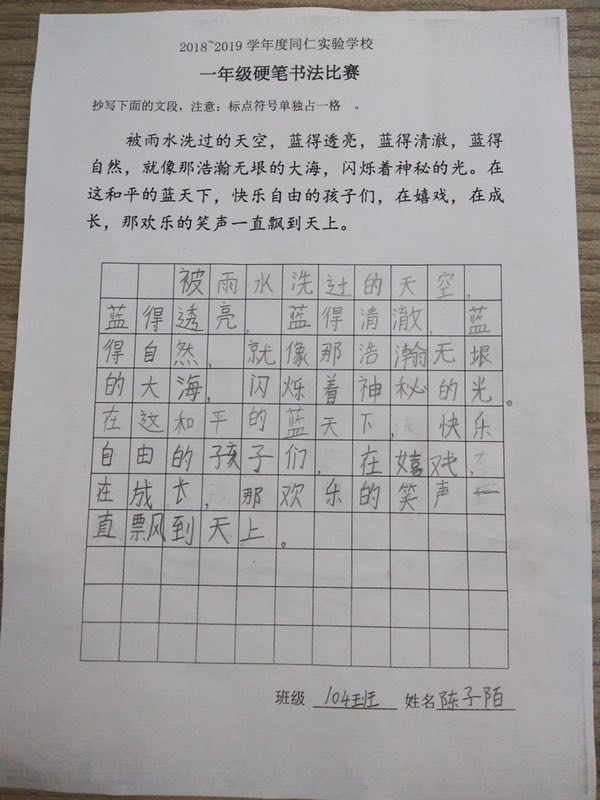 2018~2019 学年度同仁实验学校
一年级硬笔书法比赛
抄写下面的文段，注意：标点符号单独占一格 。
被雨水洗过的天空，蓝得透亮，蓝得清澈，蓝得
自然，就像那浩瀚无垠的大海，闪烁着神秘的光。在
这和平的蓝天下，快乐自由的孩子们，在嬉戏，在成
长，那欢乐的笑声一直飘到天上。
被雨水洗过的天空，
蓝得透亮，蓝得清澈，蓝
得自然，就像那浩瀚无垠
的大海，闪烁着神秘的光。
在这和平的蓝天下，快乐
自由的孩子们，在嬉戏，
在成长，那欢乐的笑声一
直飘到天上。
班级 104班 姓名 陈子陌